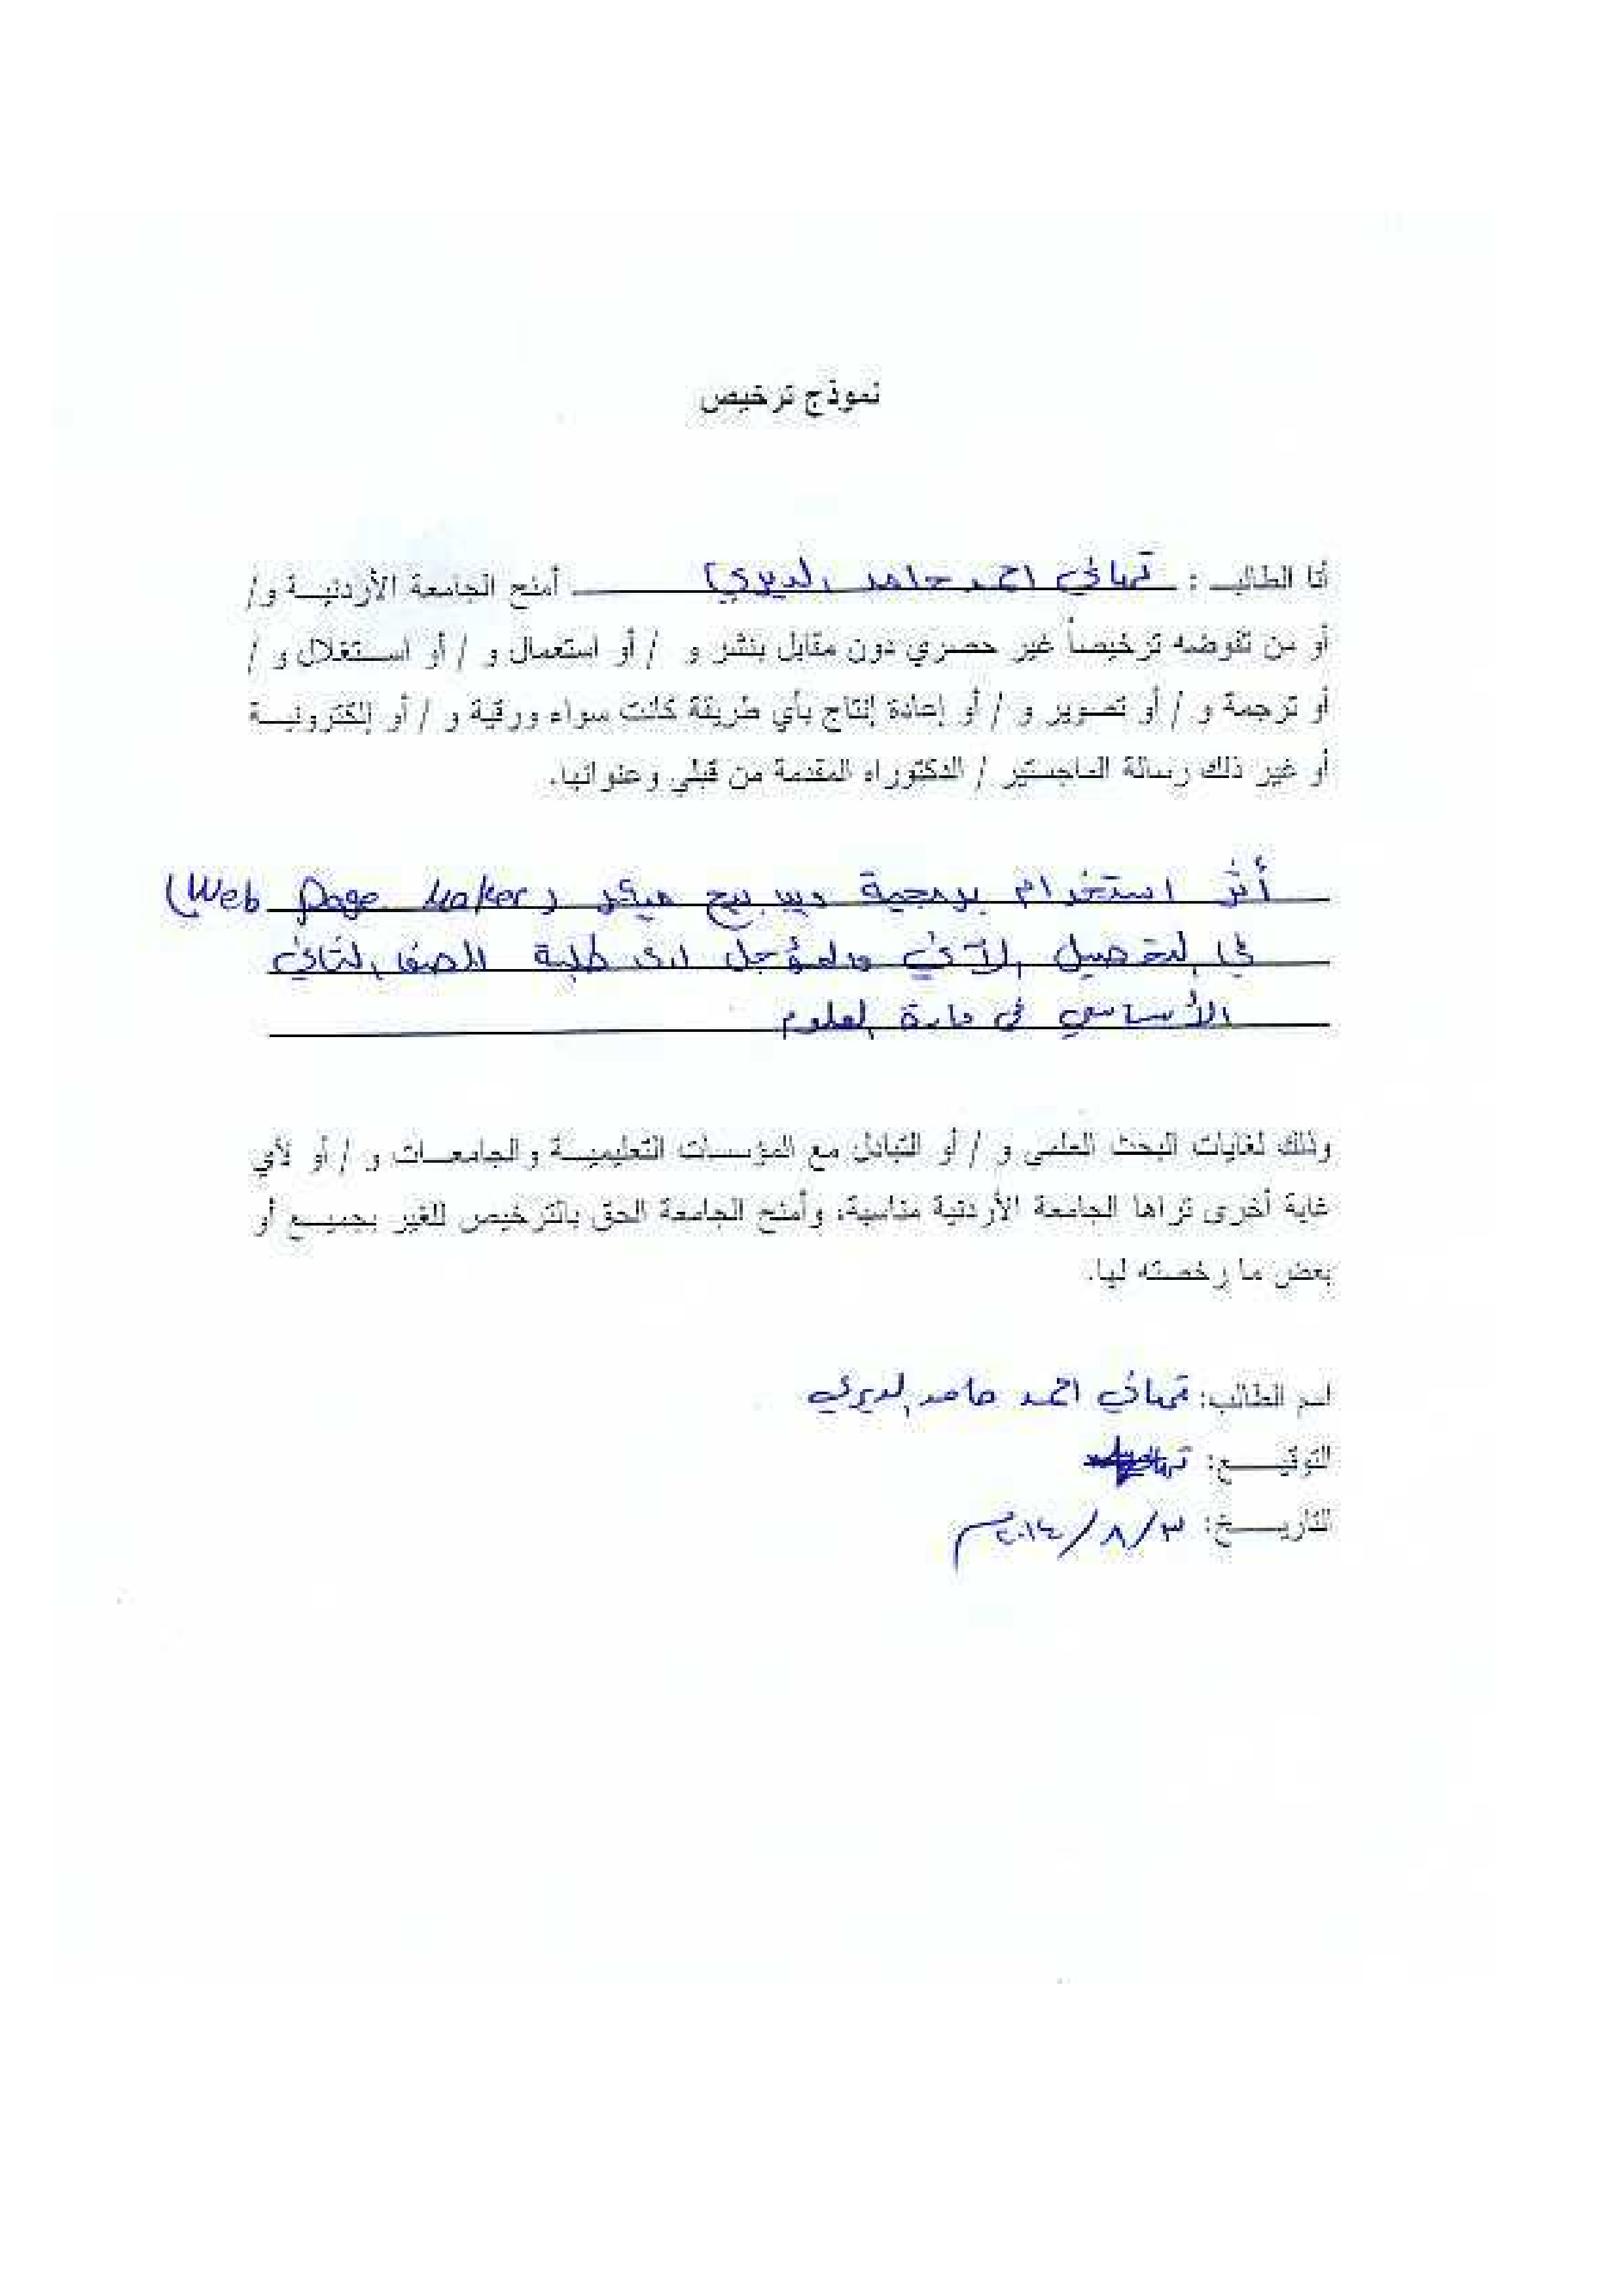 نموذج ترخيص
أنا الطالب : تهاني احمد حامد الديري أمنح الجامعة الأردنية و/
أو من تفوضه ترخيصاً غير حصري دون مقابل بنشر و / أو استعمال و / أو استغلال و /
أو ترجمة و / أو تصوير و / أو إعادة إنتاج بأي طريقة كانت سواء ورقية و / أو إلكترونية
أو غير ذلك رسالة الماجستير / الدكتوراه المقدمة من قبلي وعنوانها.
أثر استخدام برمجية ويب بيج ميكر (Web Page Maker)
في التحصيل الآني والمؤجل لدى طلبة الصف الثاني
الأساسي في مادة العلوم
وذلك لغايات البحث العلمي و / أو التبادل مع المؤسسات التعليمية والجامعات و / أو لأي
غاية أخرى تراها الجامعة الأردنية مناسبة، وأمنح الجامعة الحق بالترخيص للغير بجميع أو
بعض ما رخصته لها.
اسم الطالب: تهاني احمد حامد الديري
التوقيع:
التاريخ: ٣/٨/٢٠١٤م